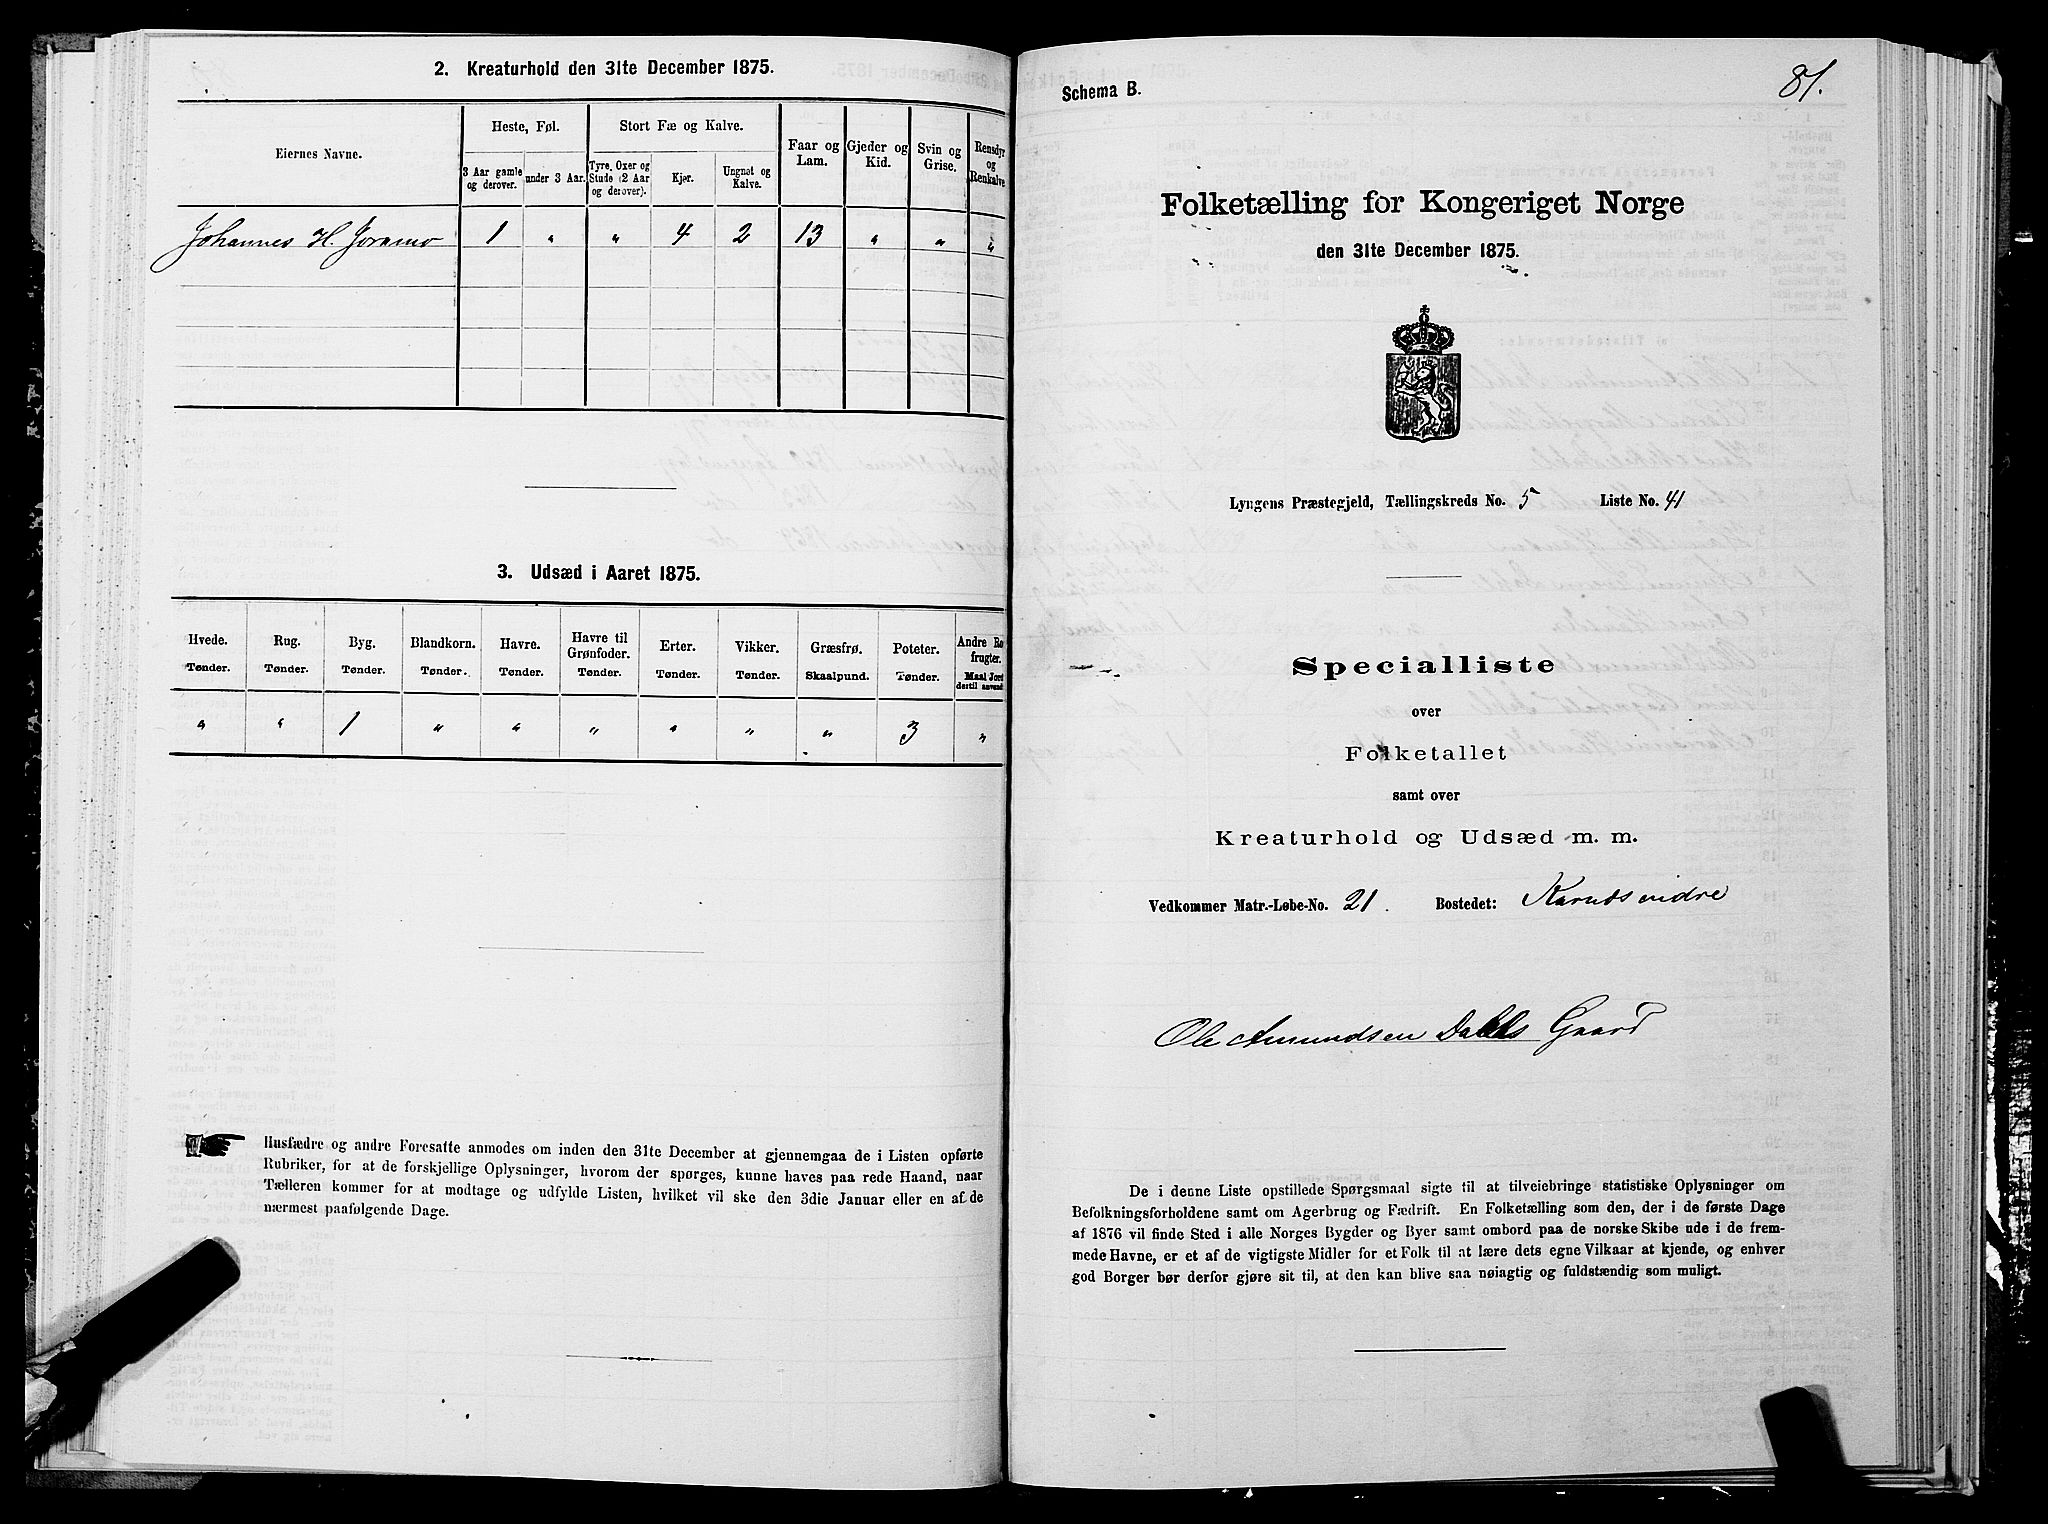 2. Kreaturhold den 31te December 1875.
Eiernes Navne.
Heste, Føl.
Stort Fæ og Kalve.
Faar og Lam.
Gjeder og Kid.
Svin og Grise.
Rensdyr og Renkalve
3 Aar gamle og derover.
under 3 Aar.
Tyre, Oxer og Stude (2 Aar og derover).
Kjør.
Ungnøt og Kalve.
Johannes H. Joramo 1 " " 4 2 13 " " "
3. Udsæd i Aaret 1875.
Hvede. Rug. Byg. Blandkorn. Havre. Havre til Grønfoder. Erter. Vikker. Græsfrø. Poteter. Andre Rofrugter.
Tønder. Tønder. Tønder. Tønder. Tønder. Tønder. Tønder. Tønder. Skaalpund. Tønder. Maal Jord dertil anvendt
" " 1 " " " " " " 3 "
Husfædre og andre Foresatte anmodes om inden den 31te December at gjennemgaa de i Listen opførte
Rubriker, for at de forskjellige Oplysninger, hvorom der spørges, kunne haves paa rede Haand, naar
Tælleren kommer for at modtage og udfylde Listen, hvilket vil ske den 3die Januar eller en af de
nærmest paafølgende Dage.
81.
Schema B.
Folketælling for Kongeriget Norge
den 31te December 1875.
Lyngens Præstegjeld, Tællingskreds No. 5 Liste No. 41
Specialliste
over
Folketallet
samt over
Kreaturhold og Udsæd m. m.
Vedkommer Matr.-Løbe-No. 21. Bostedet: Karnæs indre
Ole Amundsen Dahls Gaard
De i denne Liste opstillede Spørgsmaal sigte til at tilveiebringe statistiske Oplysninger om
Befolkningsforholdene samt om Agerbrug og Fædrift. En Folketælling som den, der i de første Dage
af 1876 vil finde Sted i alle Norges Bygder og Byer samt ombord paa de norske Skibe ude i de frem-
mede Havne, er et af de vigtigste Midler for et Folk til at lære dets egne Vilkaar at kjende, og enhver
god Borger bør derfor gjøre sit til, at den kan blive saa nøiagtig og fuldstændig som muligt.